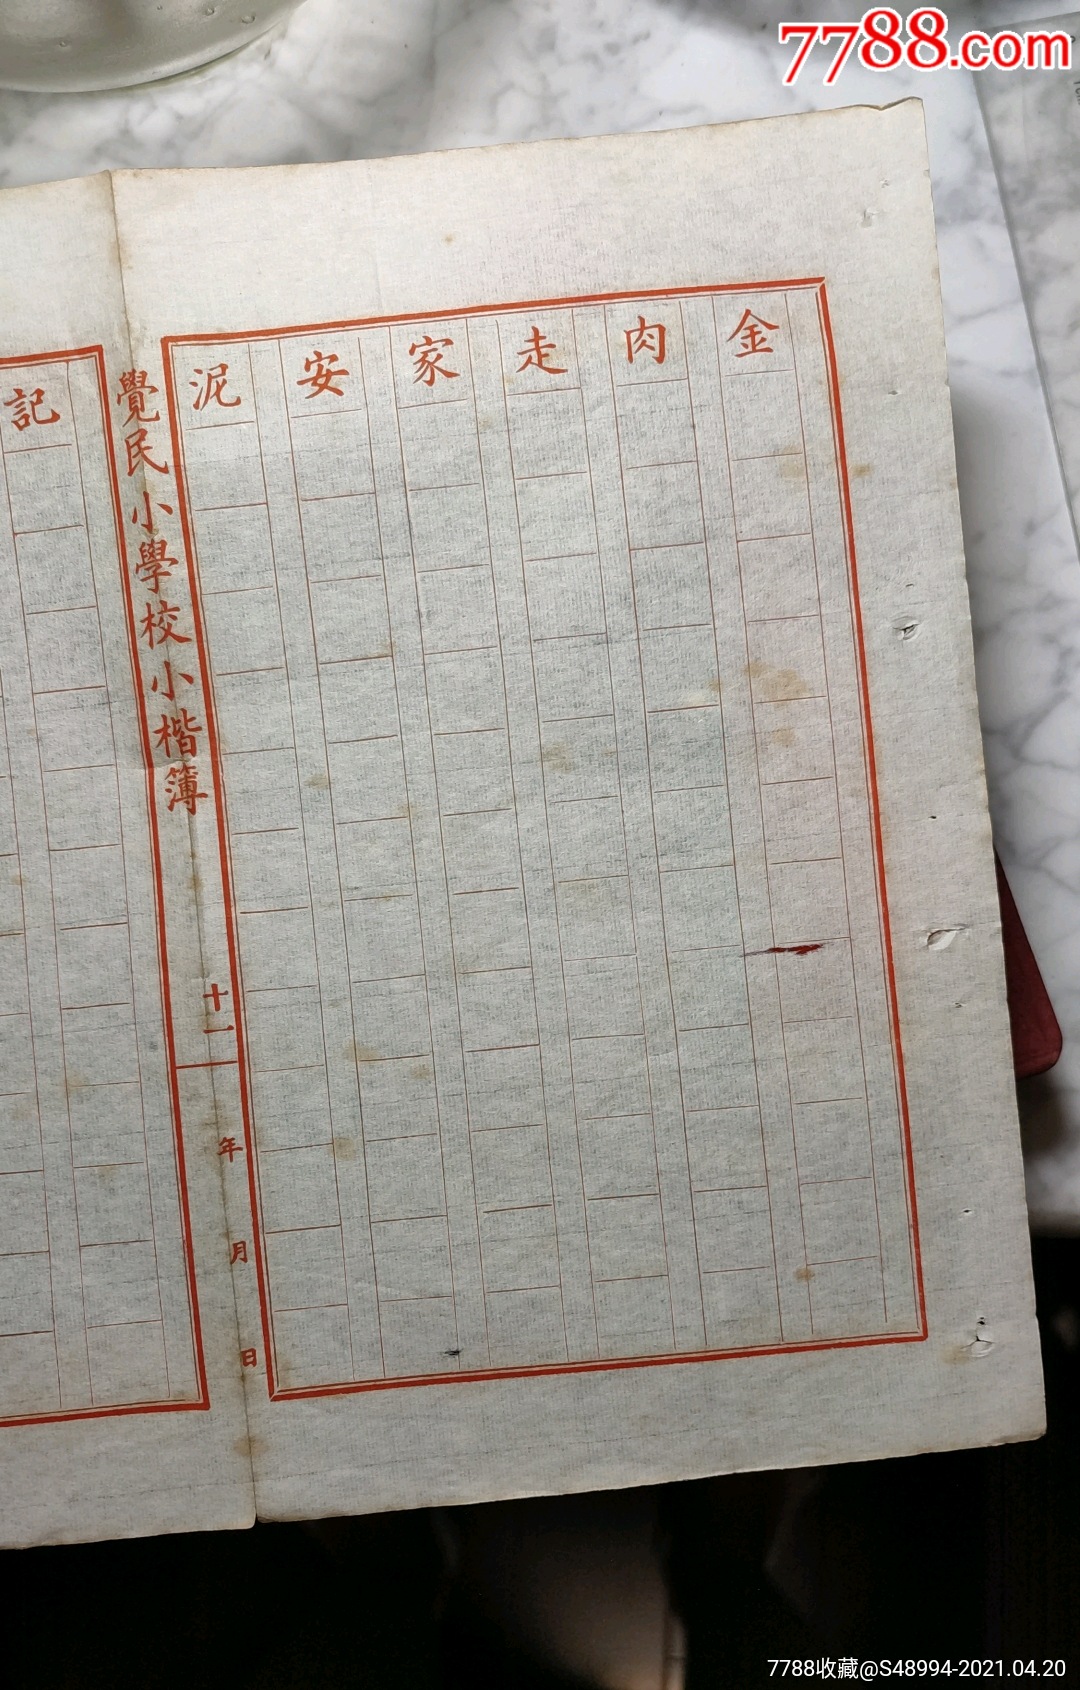 7788.com
金
肉
走
家
安
泥
覺民小學校小楷簿
十一
年 月 日
記
7788收藏@S48994-2021.04.20